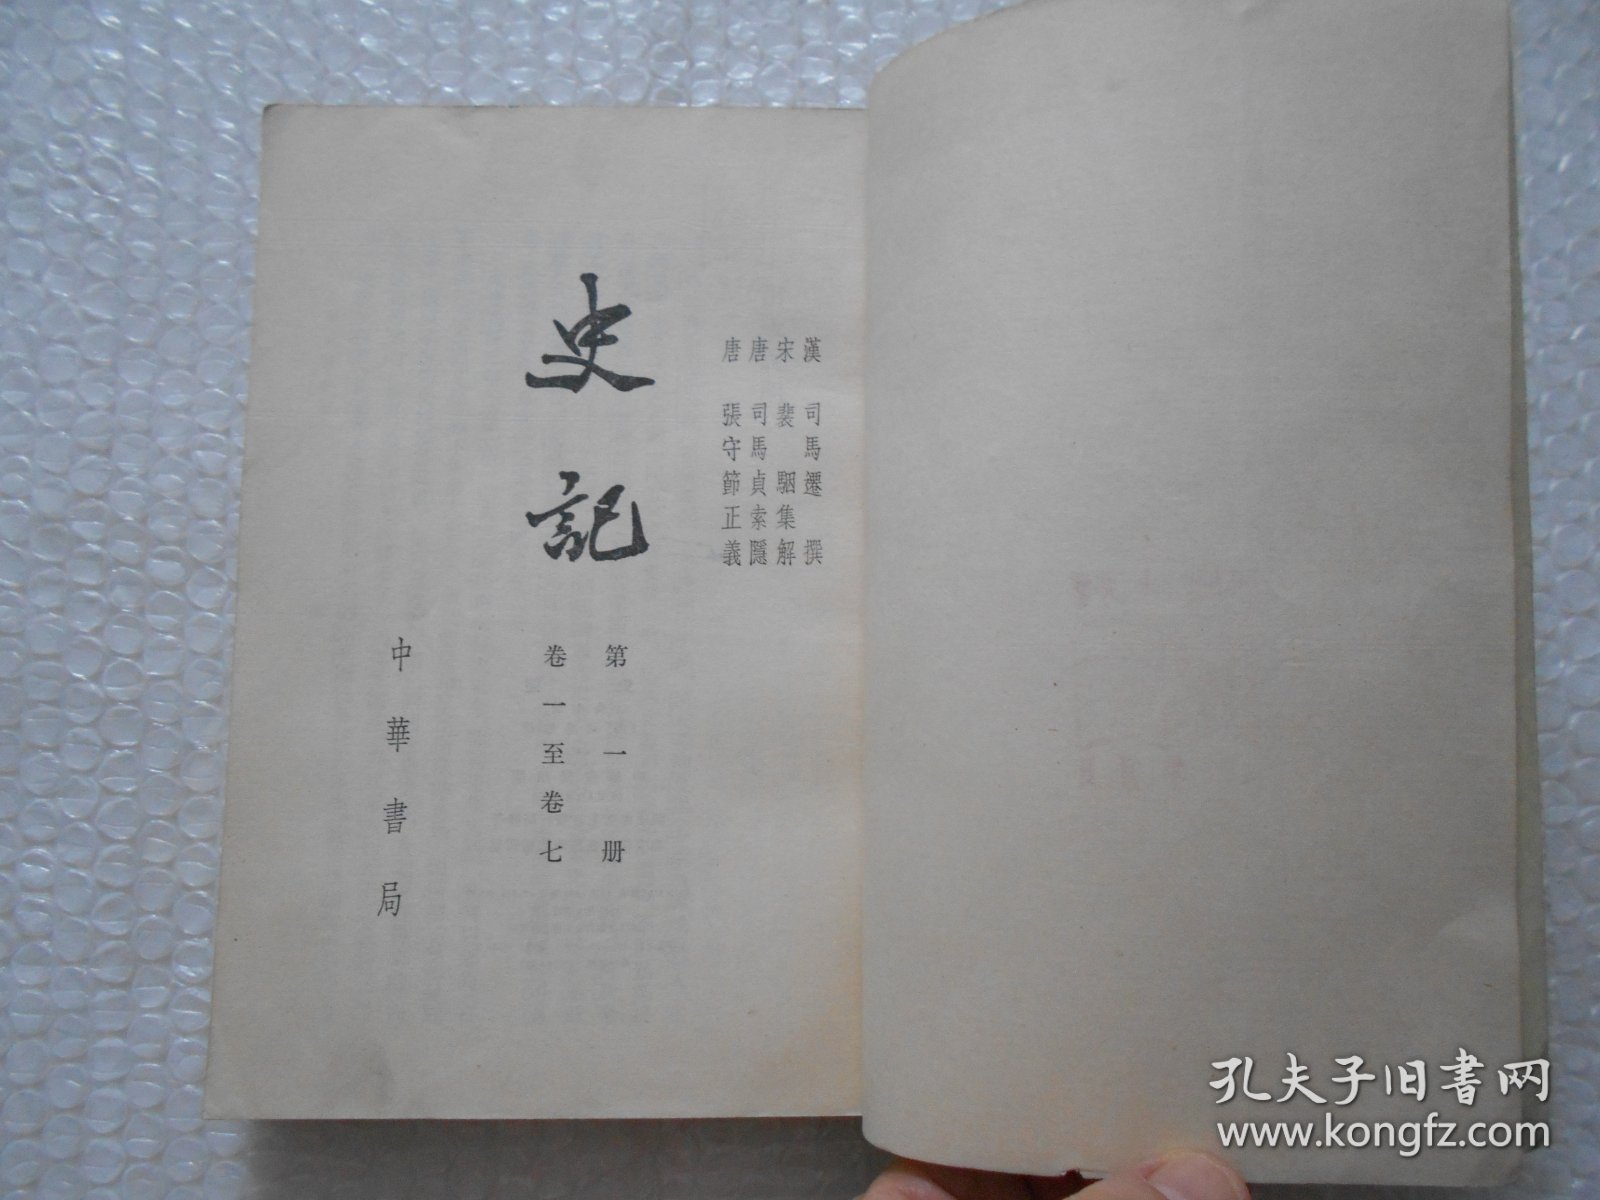 漢 司馬遷 撰
宋 裴 駰集解
唐 司馬貞索隱
唐 張守節正義
史記
第一册
卷一至卷七
中華書局
孔夫子旧書网
www.kongfz.com